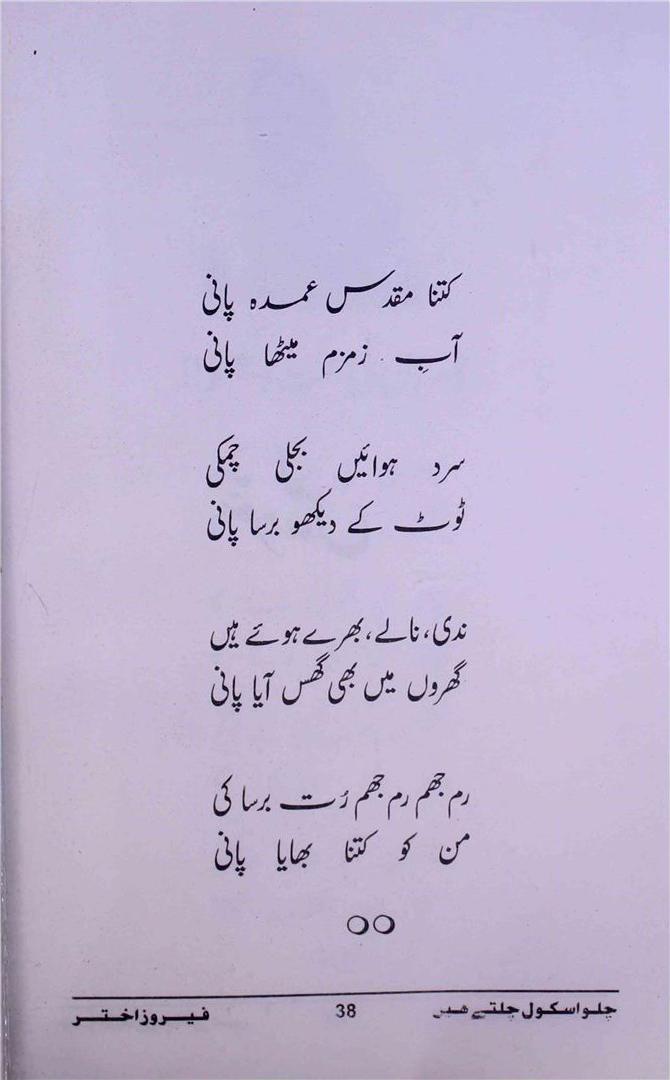 کتنا مقدس عمدہ پانی
آبِ زمزم میٹھا پانی
سرد ہوائیں بجلی چمکی
ٹوٹ کے دیکھو برسا پانی
ندی، نالے، بھرے ہوئے ہیں
گھروں میں بھی گھس آیا پانی
رم جھم رم جھم رُت برسا کی
من کو کتنا بھایا پانی
چلو اسکول چلتے ہیں 38 فیروز اختر